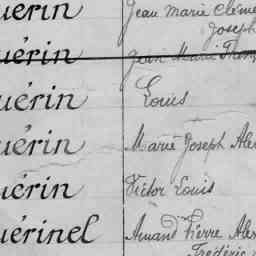 uérin Jean Marie Cléme
Joseph
uérin Jean Marie Thom
uérin Louis
uérin Marie Joseph Ale
uérin Victor Louis
uérinel Amand Pierre Alex
Frédéric